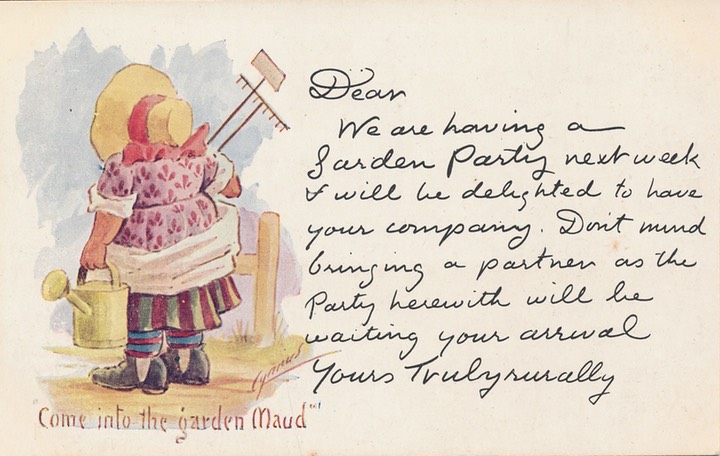 Dear
We are having a
Garden Party next week
& will be delighted to have
your company. Don't mind
bringing a partner as the
Party herewith will be
waiting your arrival
Yours Trulyrurally
Cynicus
"Come into the garden Maud"!